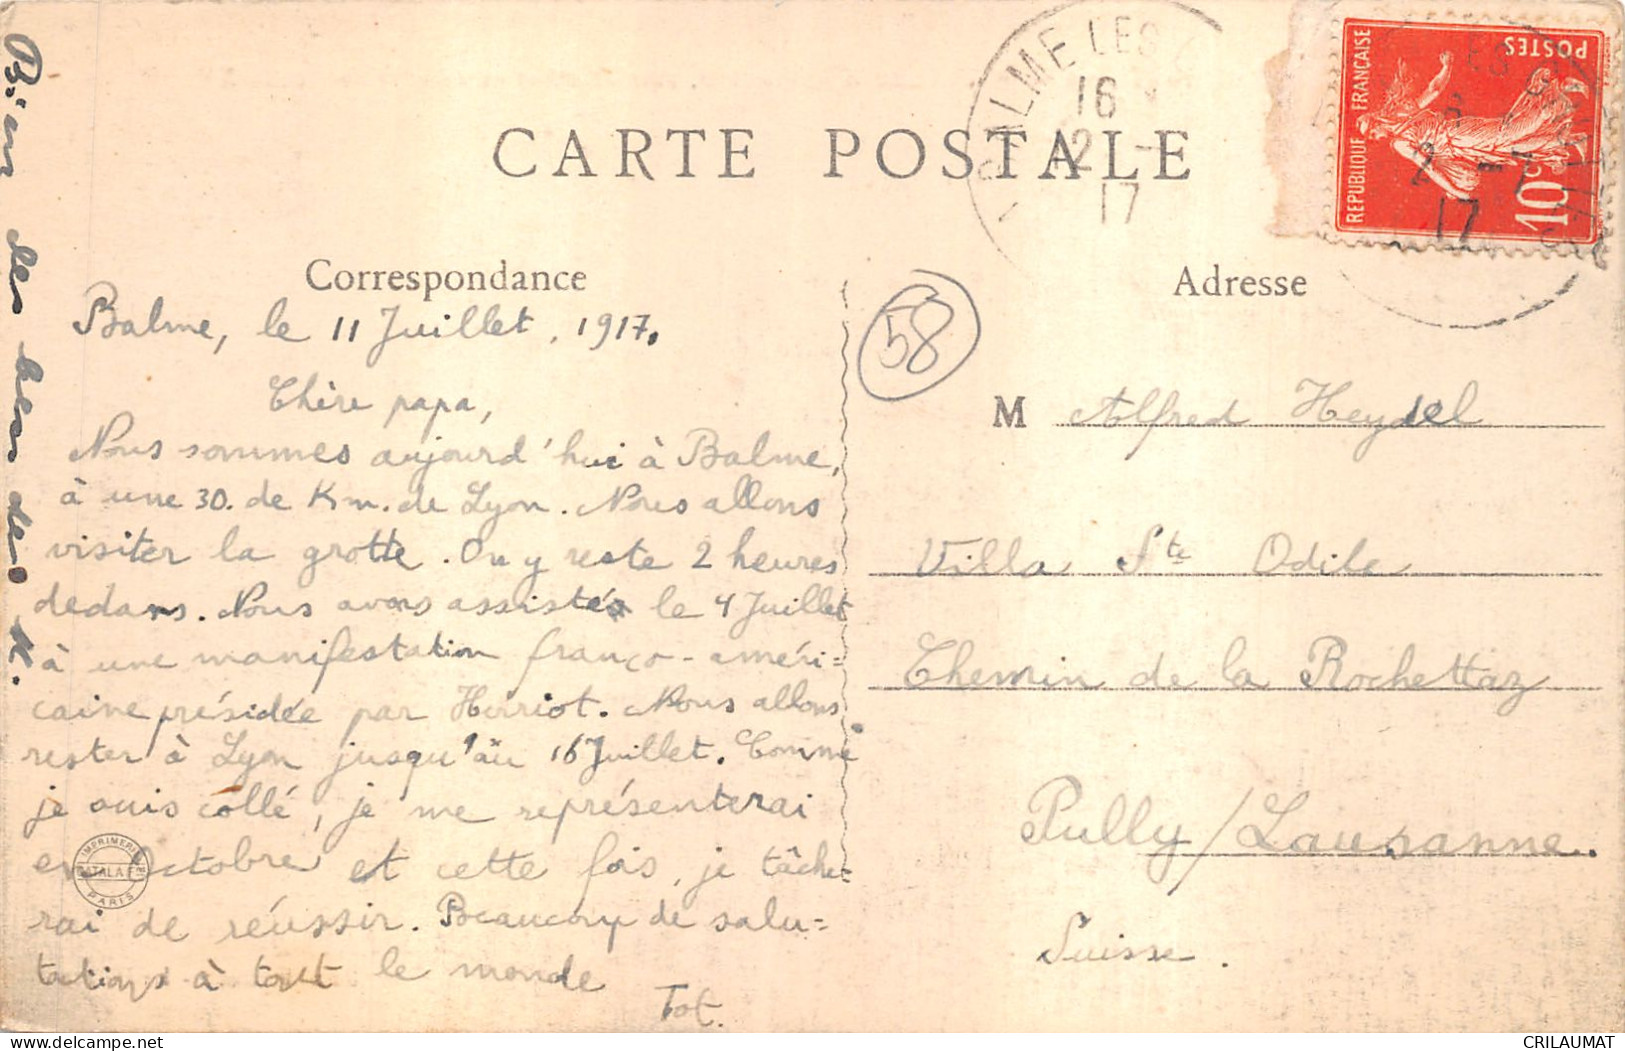 CARTE POSTALE
Correspondance
Balme, le 11 Juillet, 1917.
Chère papa,
Nous sommes aujourd'hui à Balme,
à une 30. de Km. de Lyon. Nous allons
visiter la grotte. On y reste 2 heures
dedans. Nous avons assistés le 4 Juillet
à une manifestation franco-améri=
caine présidée par Herriot. Nous allons
rester à Lyon jusqu'au 16 Juillet. Comme
je suis collé, je me représenterai
en Octobre et cette fois, je tâche=
rai de réussir. Beaucoup de salu=
tations à tout le monde
Tot.
Bien des
IMPRIMERIE
CATALA
PARIS
58
LA BALME LES
16
12 - 7
17
REPUBLIQUE FRANÇAISE
POSTES
10c
2 - 7
17
Adresse
M Alfred Heydel
Villa Ste Odile
Chemin de la Rochettaz
Pully/Lausanne.
Suisse.
delcampe.net
CRILAUMAT